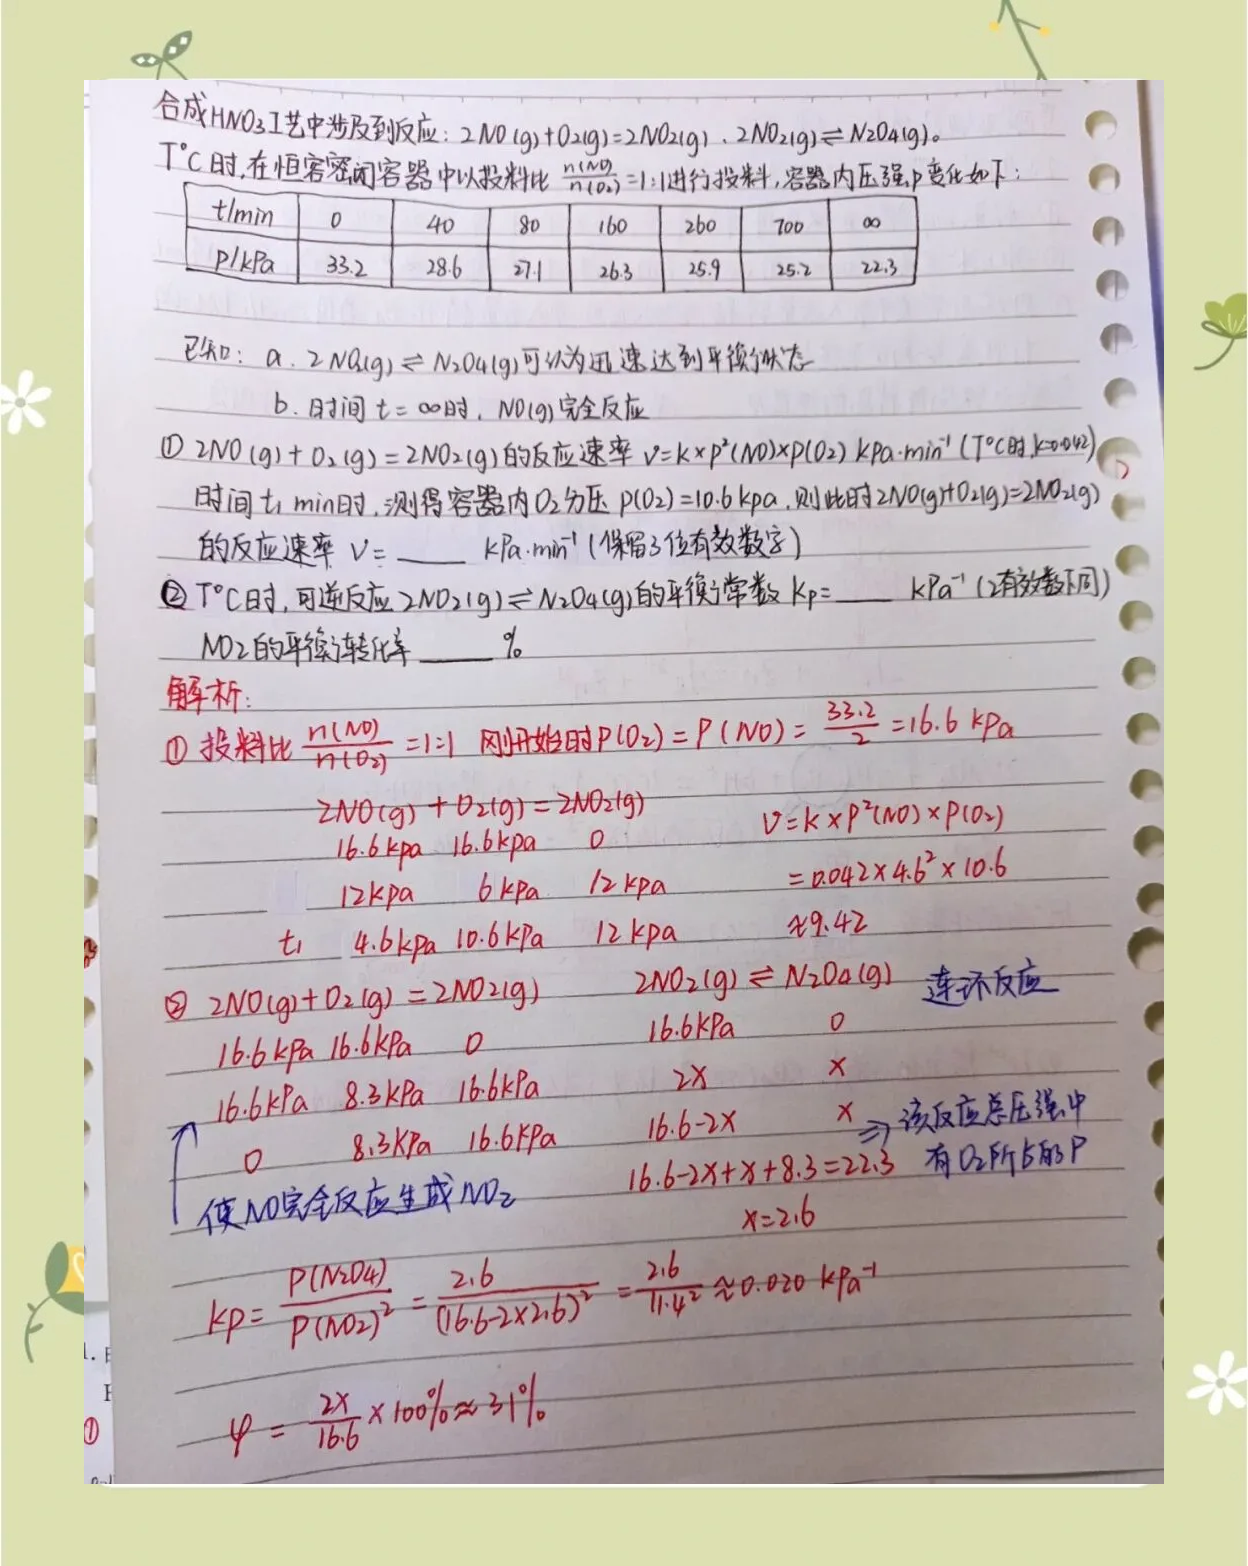 合成HNO3工艺中涉及到反应：2NO(g)+O2(g)=2NO2(g)、2NO2(g)⇌N2O4(g)。
T°C时,在恒容密闭容器中以投料比 n(NO)/n(O2)=1:1进行投料,容器内压强p变化如下：
t/min 0 40 80 160 260 700 ∞
p/kPa 33.2 28.6 27.1 26.3 25.9 25.2 22.3
已知：a. 2NO2(g)⇌N2O4(g)可认为迅速达到平衡状态
b. 时间t=∞时，NO(g)完全反应
① 2NO(g)+O2(g)=2NO2(g)的反应速率 v=k×p²(NO)×p(O2) kPa·min⁻¹(T°C时,k=0.042)
时间t₁ min时,测得容器内O2分压 p(O2)=10.6kpa,则此时2NO(g)+O2(g)=2NO2(g)
的反应速率 v=____ kPa·min⁻¹(保留3位有效数字)
② T°C时,可逆反应2NO2(g)⇌N2O4(g)的平衡常数Kp=____ kPa⁻¹(2有效数下同)
NO2的平衡转化率____%
解析:
① 投料比 n(NO)/n(O2)=1:1 刚开始时P(O2)=P(NO)=33.2/2=16.6 kPa
2NO(g)+O2(g)=2NO2(g)
v=k×p²(NO)×p(O2)
16.6kpa 16.6kpa 0
12kpa 6kpa 12kpa
=0.042×4.6²×10.6
t₁ 4.6kpa 10.6kPa 12kpa
≈9.42
② 2NO(g)+O2(g)=2NO2(g) 2NO2(g)⇌N2O4(g) 连环反应
16.6kPa 16.6kPa 0 16.6kPa 0
16.6kPa 8.3kPa 16.6kPa 2x x
0 8.3kPa 16.6kPa 16.6-2x x ⇒该反应总压强中
有O2所占的P
16.6-2x+x+8.3=22.3
使NO完全反应生成NO2
x=2.6
kp=P(N2O4)/P(NO2)²=2.6/(16.6-2×2.6)²=2.6/11.4²≈0.020 kPa⁻¹
φ=2x/16.6×100%≈31%